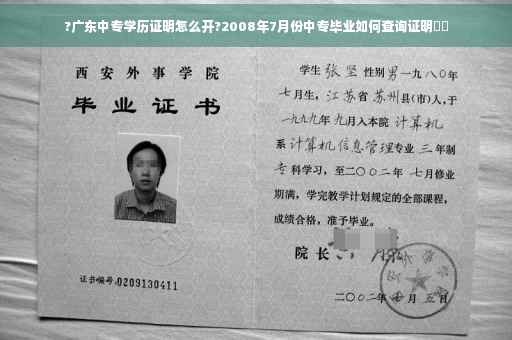 ?广东中专学历证明怎么开?2008年7月份中专毕业如何查询证明
西安外事学院
毕业证书
证书编号:0209130411
学生 张坚 性别 男 一九八〇年
七月生，江苏省 苏州县(市)人,于
一九九九年 九月入本院 计算机
系 计算机信息管理专业 三年制
专科学习，至二〇〇二年 七月修业
期满，学完教学计划规定的全部课程，
成绩合格，准予毕业。
院长
二〇〇二年 七月 五日